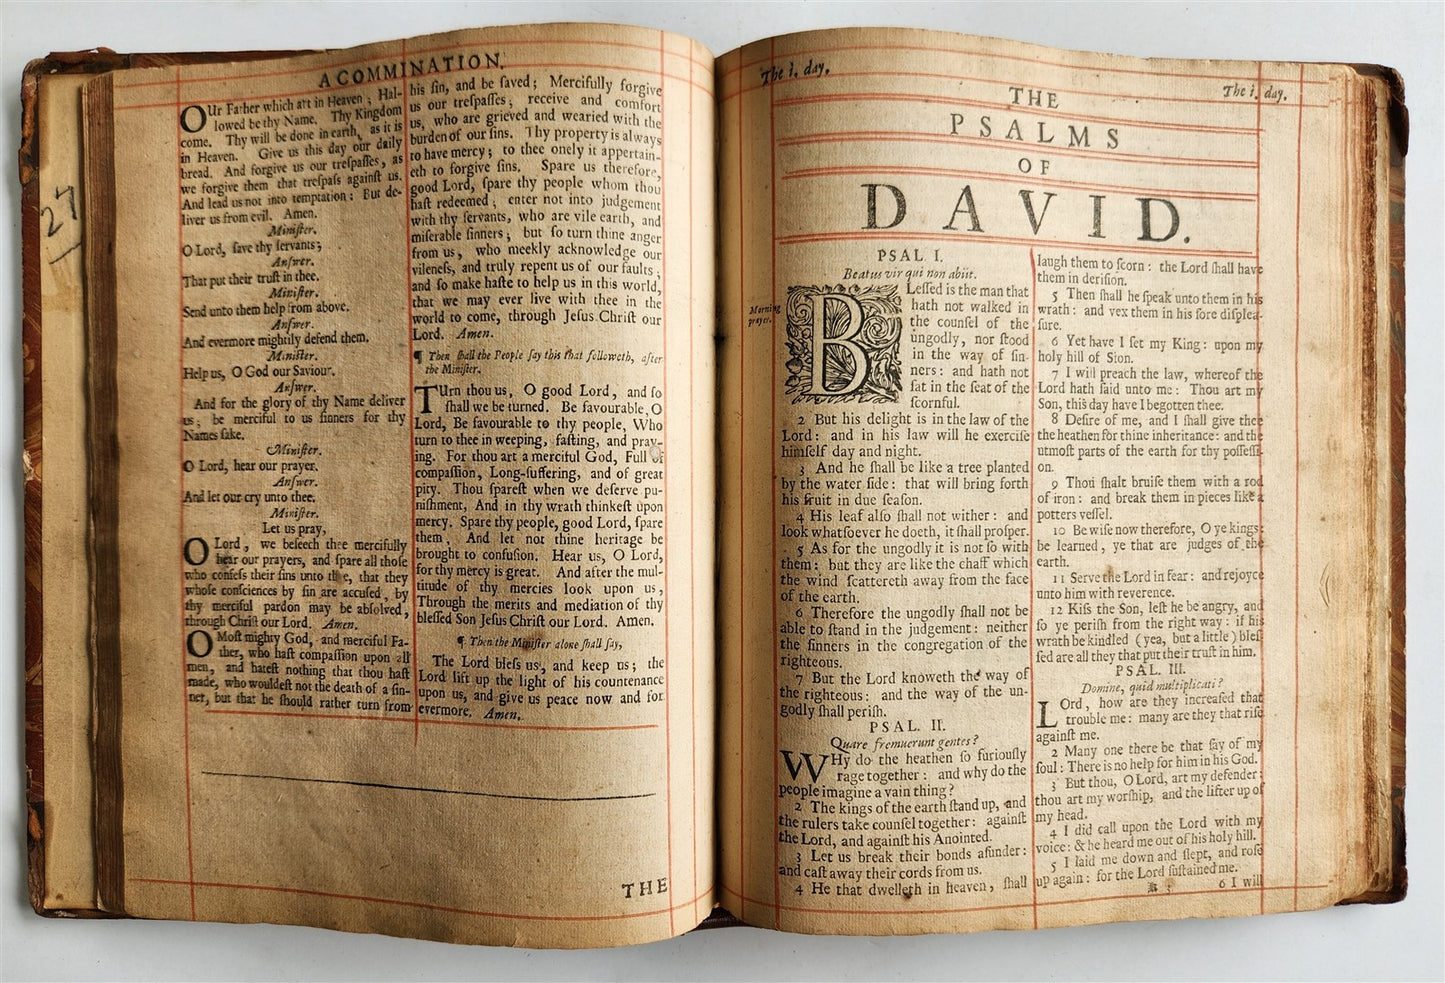 27
A COMMINATION.
OUr Father which art in Heaven ; Hal-
lowed be thy Name. Thy Kingdom
come. Thy will be done in earth, as it is
in Heaven. Give us this day our daily
bread. And forgive us our treſpaſſes, as
we forgive them that treſpaſs againſt us.
And lead us not into temptation : But de-
liver us from evil. Amen.
Miniſter.
O Lord, ſave thy ſervants ;
Anſwer.
That put their truſt in thee.
Miniſter.
Send unto them help from above.
Anſwer.
And evermore mightily defend them.
Miniſter.
Help us, O God our Saviour.
Anſwer.
And for the glory of thy Name deliver
us ; be merciful to us ſinners for thy
Names ſake.
Miniſter.
O Lord, hear our prayer.
Anſwer.
And let our cry unto thee.
Miniſter.
Let us pray,
O Lord , we beſeech thee mercifully
hear our prayers, and ſpare all thoſe
who confeſs their ſins unto thee, that they
whoſe conſciences by ſin are accuſed, by
thy merciful pardon may be abſolved,
through Chriſt our Lord. Amen.
O Moſt mighty God, and merciful Fa-
ther, who haſt compaſſion upon all
men, and hateſt nothing that thou haſt
made, who wouldeſt not the death of a ſin-
ner, but that he ſhould rather turn from
his ſin, and be ſaved ; Mercifully forgive
us our treſpaſſes ; receive and comfort
us, who are grieved and wearied with the
burden of our ſins. Thy property is always
to have mercy ; to thee onely it appertain-
eth to forgive ſins. Spare us therefore,
good Lord, ſpare thy people whom thou
haſt redeemed ; enter not into judgement
with thy ſervants, who are vile earth, and
miſerable ſinners ; but ſo turn thine anger
from us , who meekly acknowledge our
vileneſs, and truly repent us of our faults ;
and ſo make haſte to help us in this world,
that we may ever live with thee in the
world to come, through Jeſus Chriſt our
Lord. Amen.
¶ Then ſhall the People ſay this that followeth, after
the Miniſter.
TUrn thou us, O good Lord, and ſo
ſhall we be turned. Be favourable, O
Lord, Be favourable to thy people, Who
turn to thee in weeping, faſting, and pray-
ing. For thou art a merciful God, Full of
compaſſion, Long-ſuffering, and of great
pity. Thou ſpareſt when we deſerve pu-
niſhment, And in thy wrath thinkeſt upon
mercy. Spare thy people, good Lord, ſpare
them, And let not thine heritage be
brought to confuſion. Hear us, O Lord,
for thy mercy is great. And after the mul-
titude of thy mercies look upon us,
Through the merits and mediation of thy
bleſſed Son Jeſus Chriſt our Lord. Amen.
¶ Then the Miniſter alone ſhall ſay,
The Lord bleſs us, and keep us ; the
Lord lift up the light of his countenance
upon us, and give us peace now and for
evermore. Amen.
THE
The i. day.
The i. day.
THE
PSALMS
OF
DAVID.
Morning
prayer.
PSAL I.
Beatus vir qui non abiit.
BLeſſed is the man that
hath not walked in
the counſel of the
ungodly, nor ſtood
in the way of ſin-
ners : and hath not
ſat in the ſeat of the
ſcornful.
2 But his delight is in the law of the
Lord : and in his law will he exerciſe
himſelf day and night.
3 And he ſhall be like a tree planted
by the water ſide : that will bring forth
his fruit in due ſeaſon.
4 His leaf alſo ſhall not wither : and
look whatſoever he doeth, it ſhall proſper.
5 As for the ungodly it is not ſo with
them : but they are like the chaff which
the wind ſcattereth away from the face
of the earth.
6 Therefore the ungodly ſhall not be
able to ſtand in the judgement : neither
the ſinners in the congregation of the
righteous.
7 But the Lord knoweth the way of
the righteous : and the way of the un-
godly ſhall periſh.
PSAL. II.
Quare fremuerunt gentes ?
WHy do the heathen ſo furiouſly
rage together : and why do the
people imagine a vain thing ?
2 The kings of the earth ſtand up, and
the rulers take counſel together : againſt
the Lord, and againſt his Anointed.
3 Let us break their bonds aſunder :
and caſt away their cords from us.
4 He that dwelleth in heaven, ſhall
laugh them to ſcorn : the Lord ſhall have
them in deriſion.
5 Then ſhall he ſpeak unto them in his
wrath : and vex them in his ſore diſplea-
ſure.
6 Yet have I ſet my King : upon my
holy hill of Sion.
7 I will preach the law, whereof the
Lord hath ſaid unto me : Thou art my
Son, this day have I begotten thee.
8 Deſire of me, and I ſhall give thee
the heathen for thine inheritance : and the
utmoſt parts of the earth for thy poſſeſſi-
on.
9 Thou ſhalt bruiſe them with a rod
of iron : and break them in pieces like a
potters veſſel.
10 Be wiſe now therefore, O ye kings :
be learned, ye that are judges of the
earth.
11 Serve the Lord in fear : and rejoyce
unto him with reverence.
12 Kiſs the Son, leſt he be angry, and
ſo ye periſh from the right way : if his
wrath be kindled (yea, but a little) bleſ-
ſed are all they that put their truſt in him.
PSAL. III.
Domine, quid multiplicati ?
LOrd, how are they increaſed that
trouble me : many are they that riſe
againſt me.
2 Many one there be that ſay of my
ſoul : There is no help for him in his God.
3 But thou, O Lord, art my defender :
thou art my worſhip, and the lifter up of
my head.
4 I did call upon the Lord with my
voice : & he heard me out of his holy hill.
5 I laid me down and ſlept, and roſe
up again : for the Lord ſuſtained me.
6 I will